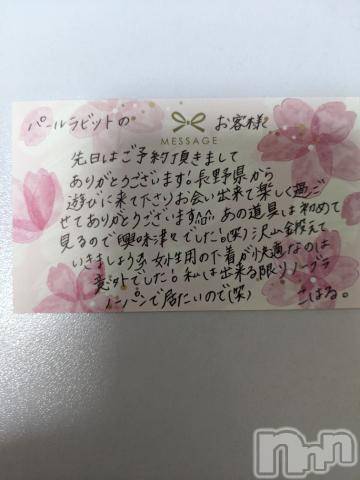 パールラビットの お客様
MESSAGE
先日はご予約頂きまして
ありがとうございます!長野県から
遊びに来て下さりお会い出来て楽しく過ご
せてありがとうございます あの道具は初めて
見るので興味津々でした!(笑)沢山鍛えて
いきましょう 女性用の下着が快適なのは
意外でした。私は出来る限りノーブラ
ノーパンで居たいので(笑) こはる。
nnn